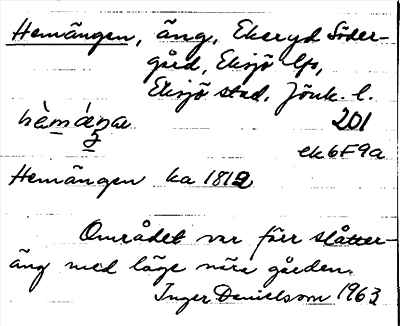 Hemängen, äng, Ekeryd Söder-
gård, Eksjö lfs,
Eksjö stad, Jönk. l.
201
ek 6F9a
Hemängen ka 1812
Området var förr slåtter-
äng med läge nära gården.
Inger Danielsson 1963